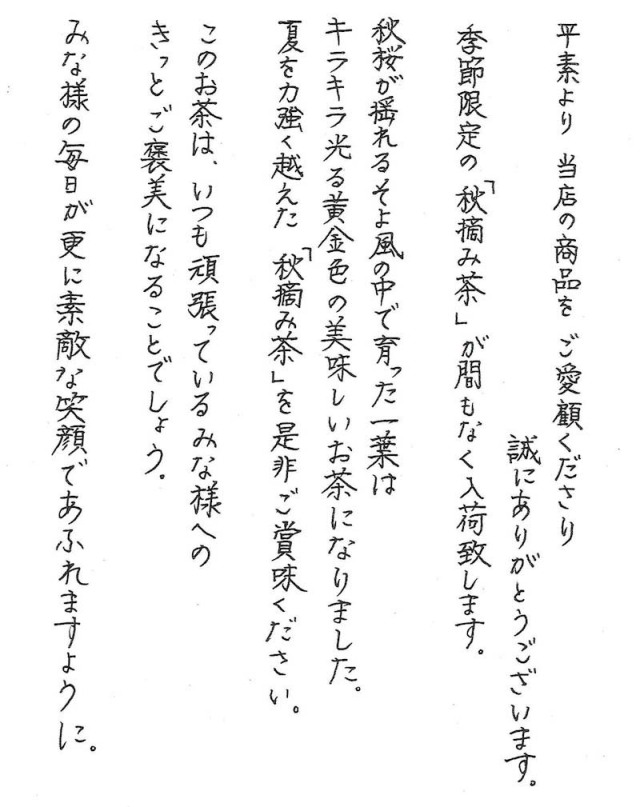 平素より 当店の商品を ご愛顧くださり
誠にありがとうございます。
季節限定の「秋摘み茶」が間もなく入荷致します。
秋桜が揺れるそよ風の中で育った一葉は
キラキラ光る黄金色の美味しいお茶になりました。
夏を力強く越えた「秋摘み茶」を是非ご賞味ください。
このお茶は、いつも頑張っているみな様への
きっとご褒美になることでしょう。
みな様の毎日が更に素敵な笑顔であふれますように。